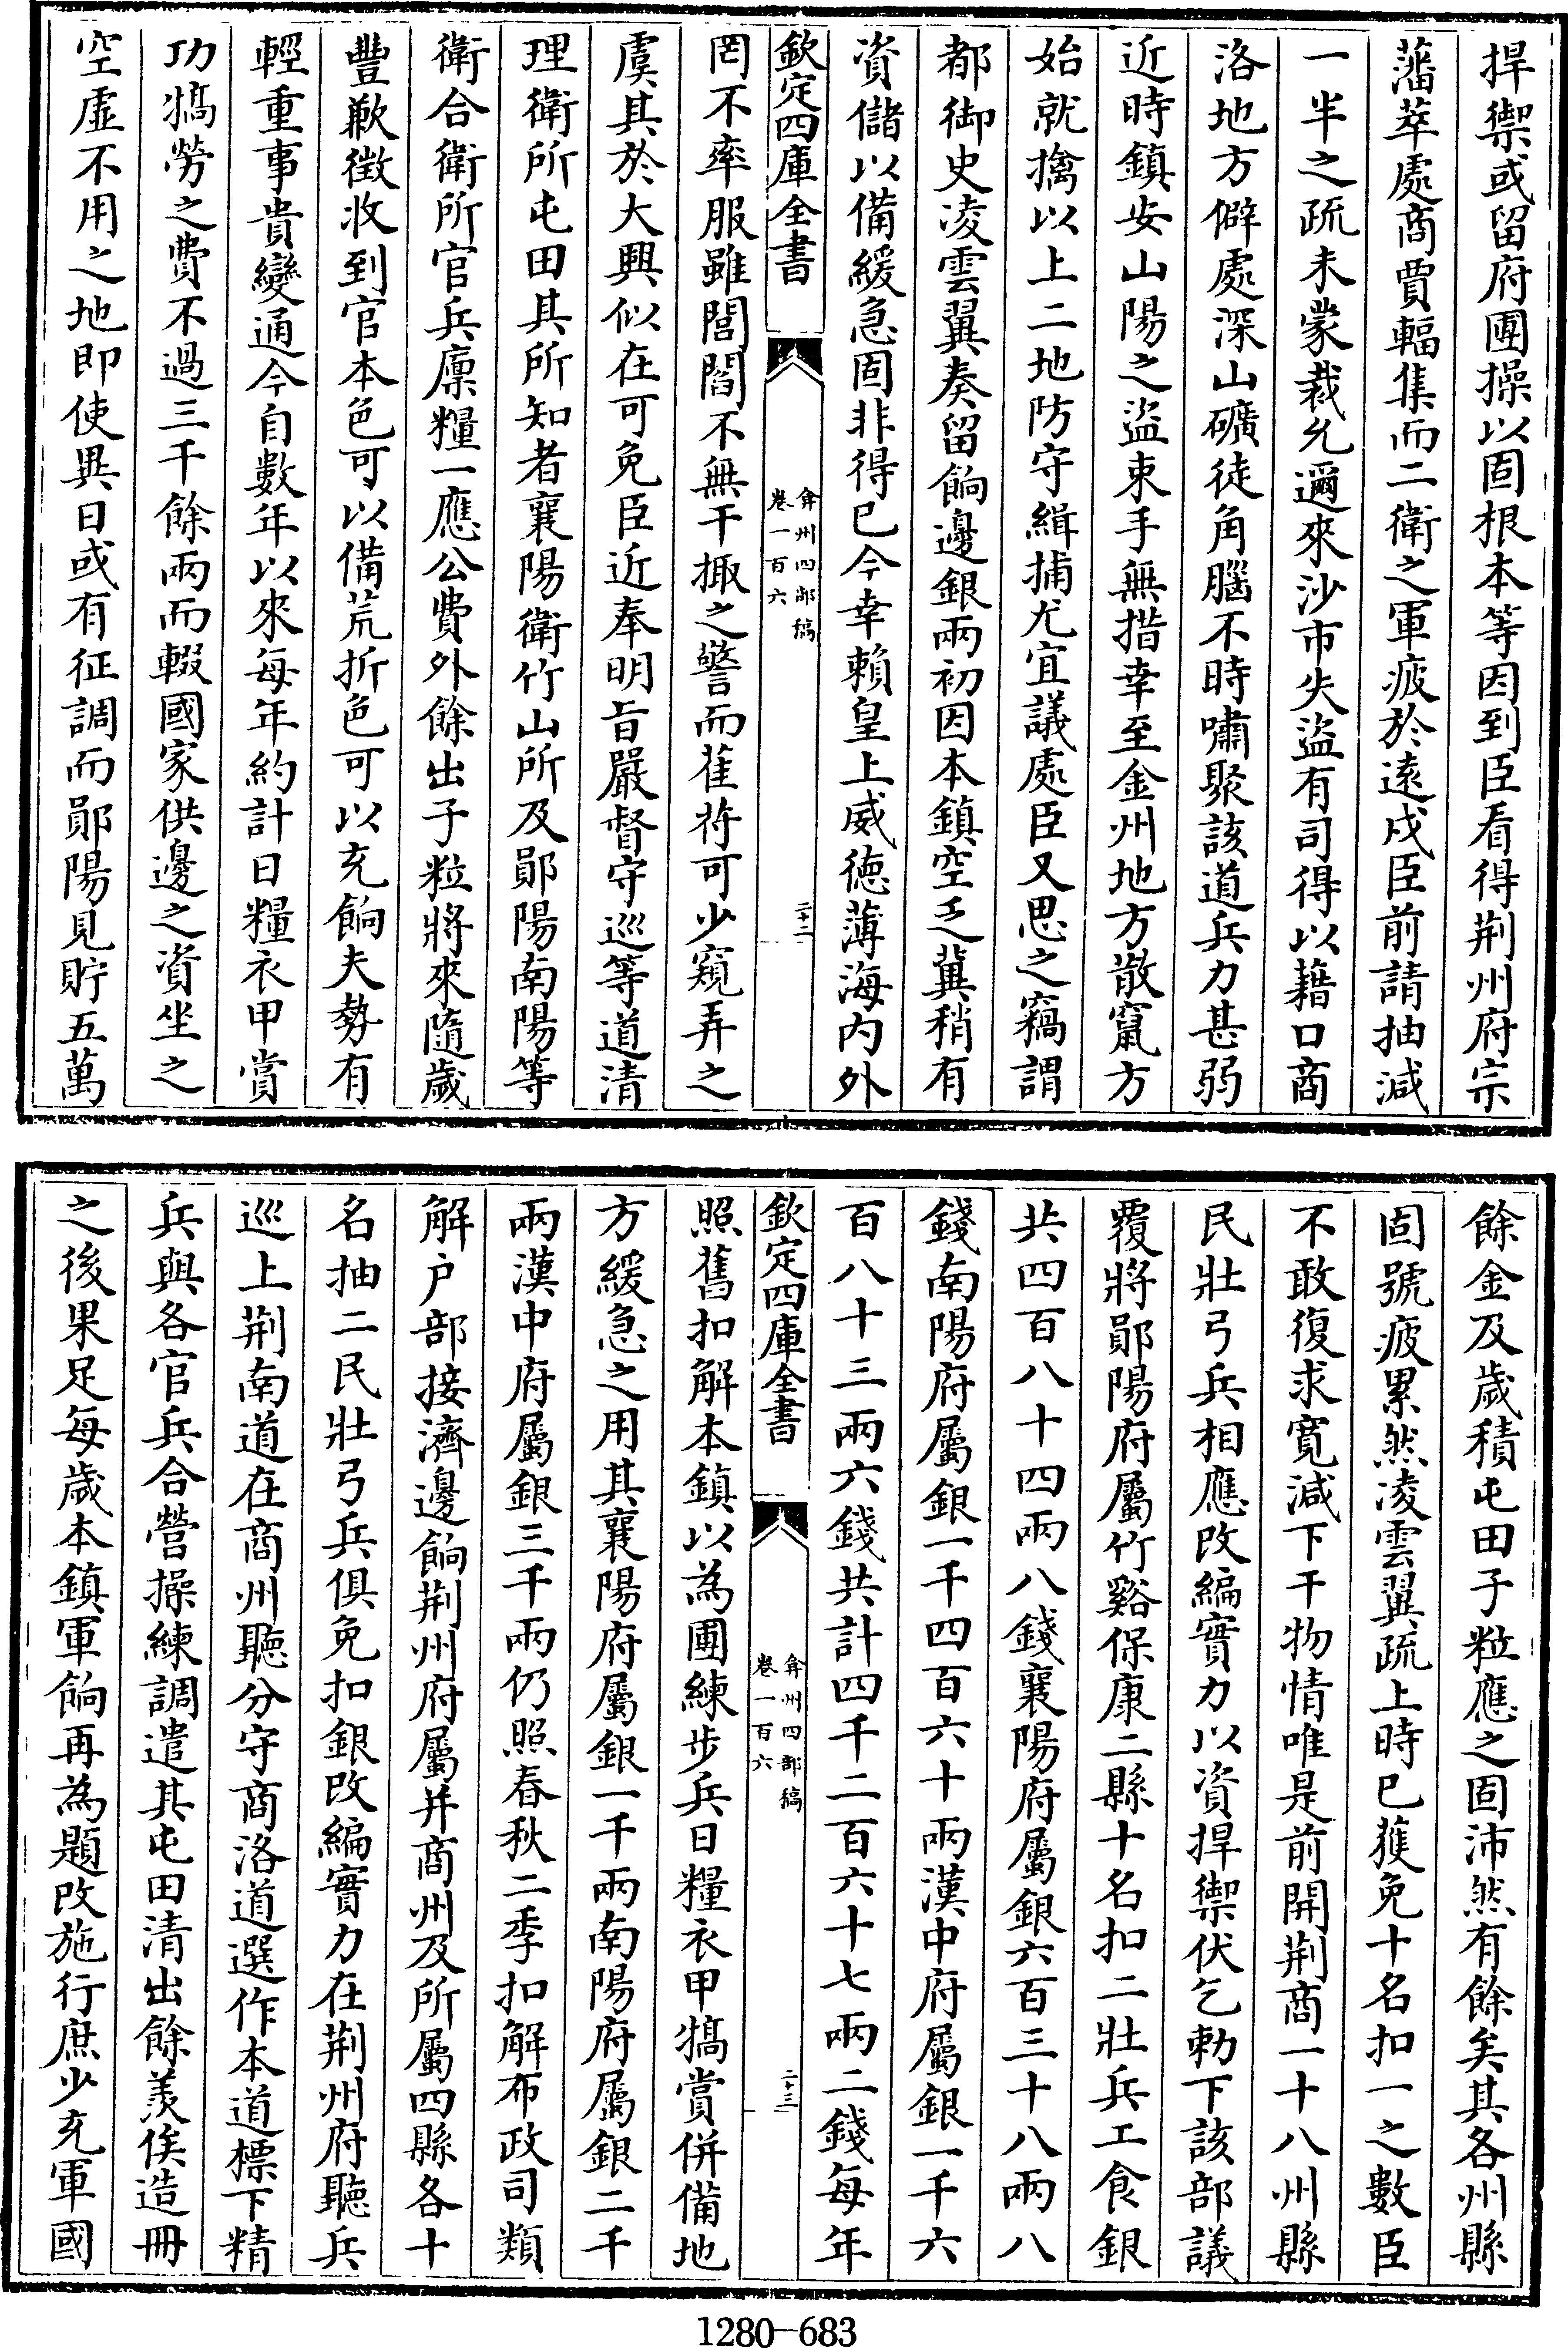 捍禦或留府團操以固根本等因到臣看得荆州府宗
藩萃處商賈輻集而二衛之軍疲於遠戍臣前請抽減
一半之疏未蒙裁允邇來沙市失盜有司得以藉口商
洛地方僻處深山礦徒角腦不時嘯聚該道兵力甚弱
近時鎮安山陽之盜束手無措幸至金州地方散竄方
始就擒以上二地防守緝捕尤宜議處臣又思之竊謂
都御史凌雲翼奏留餉邊銀兩初因本鎮空乏冀稍有
資儲以備緩急固非得已今幸賴皇上威徳薄海内外
欽定四庫全書
弇州四部稿
卷一百六
二十二
罔不率服雖閭閻不無干掫之警而萑苻可少窺弄之
虞其於大興似在可免臣近奉明旨嚴督守巡等道清
理衛所屯田其所知者襄陽衛竹山所及鄖陽南陽等
衛合衛所官兵廩糧一應公費外餘出子粒將來隨歲
豐歉徴收到官本色可以備荒折色可以充餉夫勢有
輕重事貴變通今自數年以來每年約計日糧衣甲賞
功犒勞之費不過三千餘兩而輟國家供邊之資坐之
空虛不用之地即使異日或有征調而鄖陽見貯五萬
餘金及歲積屯田子粒應之固沛然有餘矣其各州縣
固號疲累然凌雲翼疏上時已蒦免十名扣一之數臣
不敢復求寛減下干物情唯是前開荆商一十八州縣
民壯弓兵相應改編實力以資捍禦伏乞勅下該部議
覆將鄖陽府屬竹谿保康二縣十名扣二壯兵工食銀
共四百八十四兩八錢襄陽府屬銀六百三十八兩八
錢南陽府屬銀一千四百六十兩漢中府屬銀一千六
百八十三兩六錢共計四千二百六十七兩二錢每年
欽定四庫全書
弇州四部稿
卷一百六
二十三
照舊扣解本鎮以為團練步兵日糧衣甲犒賞併備地
方緩急之用其襄陽府屬銀一千兩南陽府屬銀二千
兩漢中府屬銀三千兩仍照春秋二季扣解布政司類
解户部接濟邊餉荆州府屬并商州及所屬四縣各十
名抽二民壯弓兵俱免扣銀改編實力在荆州府聽兵
巡上荆南道在商州聽分守商洛道選作本道標下精
兵與各官兵合營操練調遣其屯田清出餘羨俟造冊
之後果足每歲本鎮軍餉再為題改施行庶少充軍國
1280—683